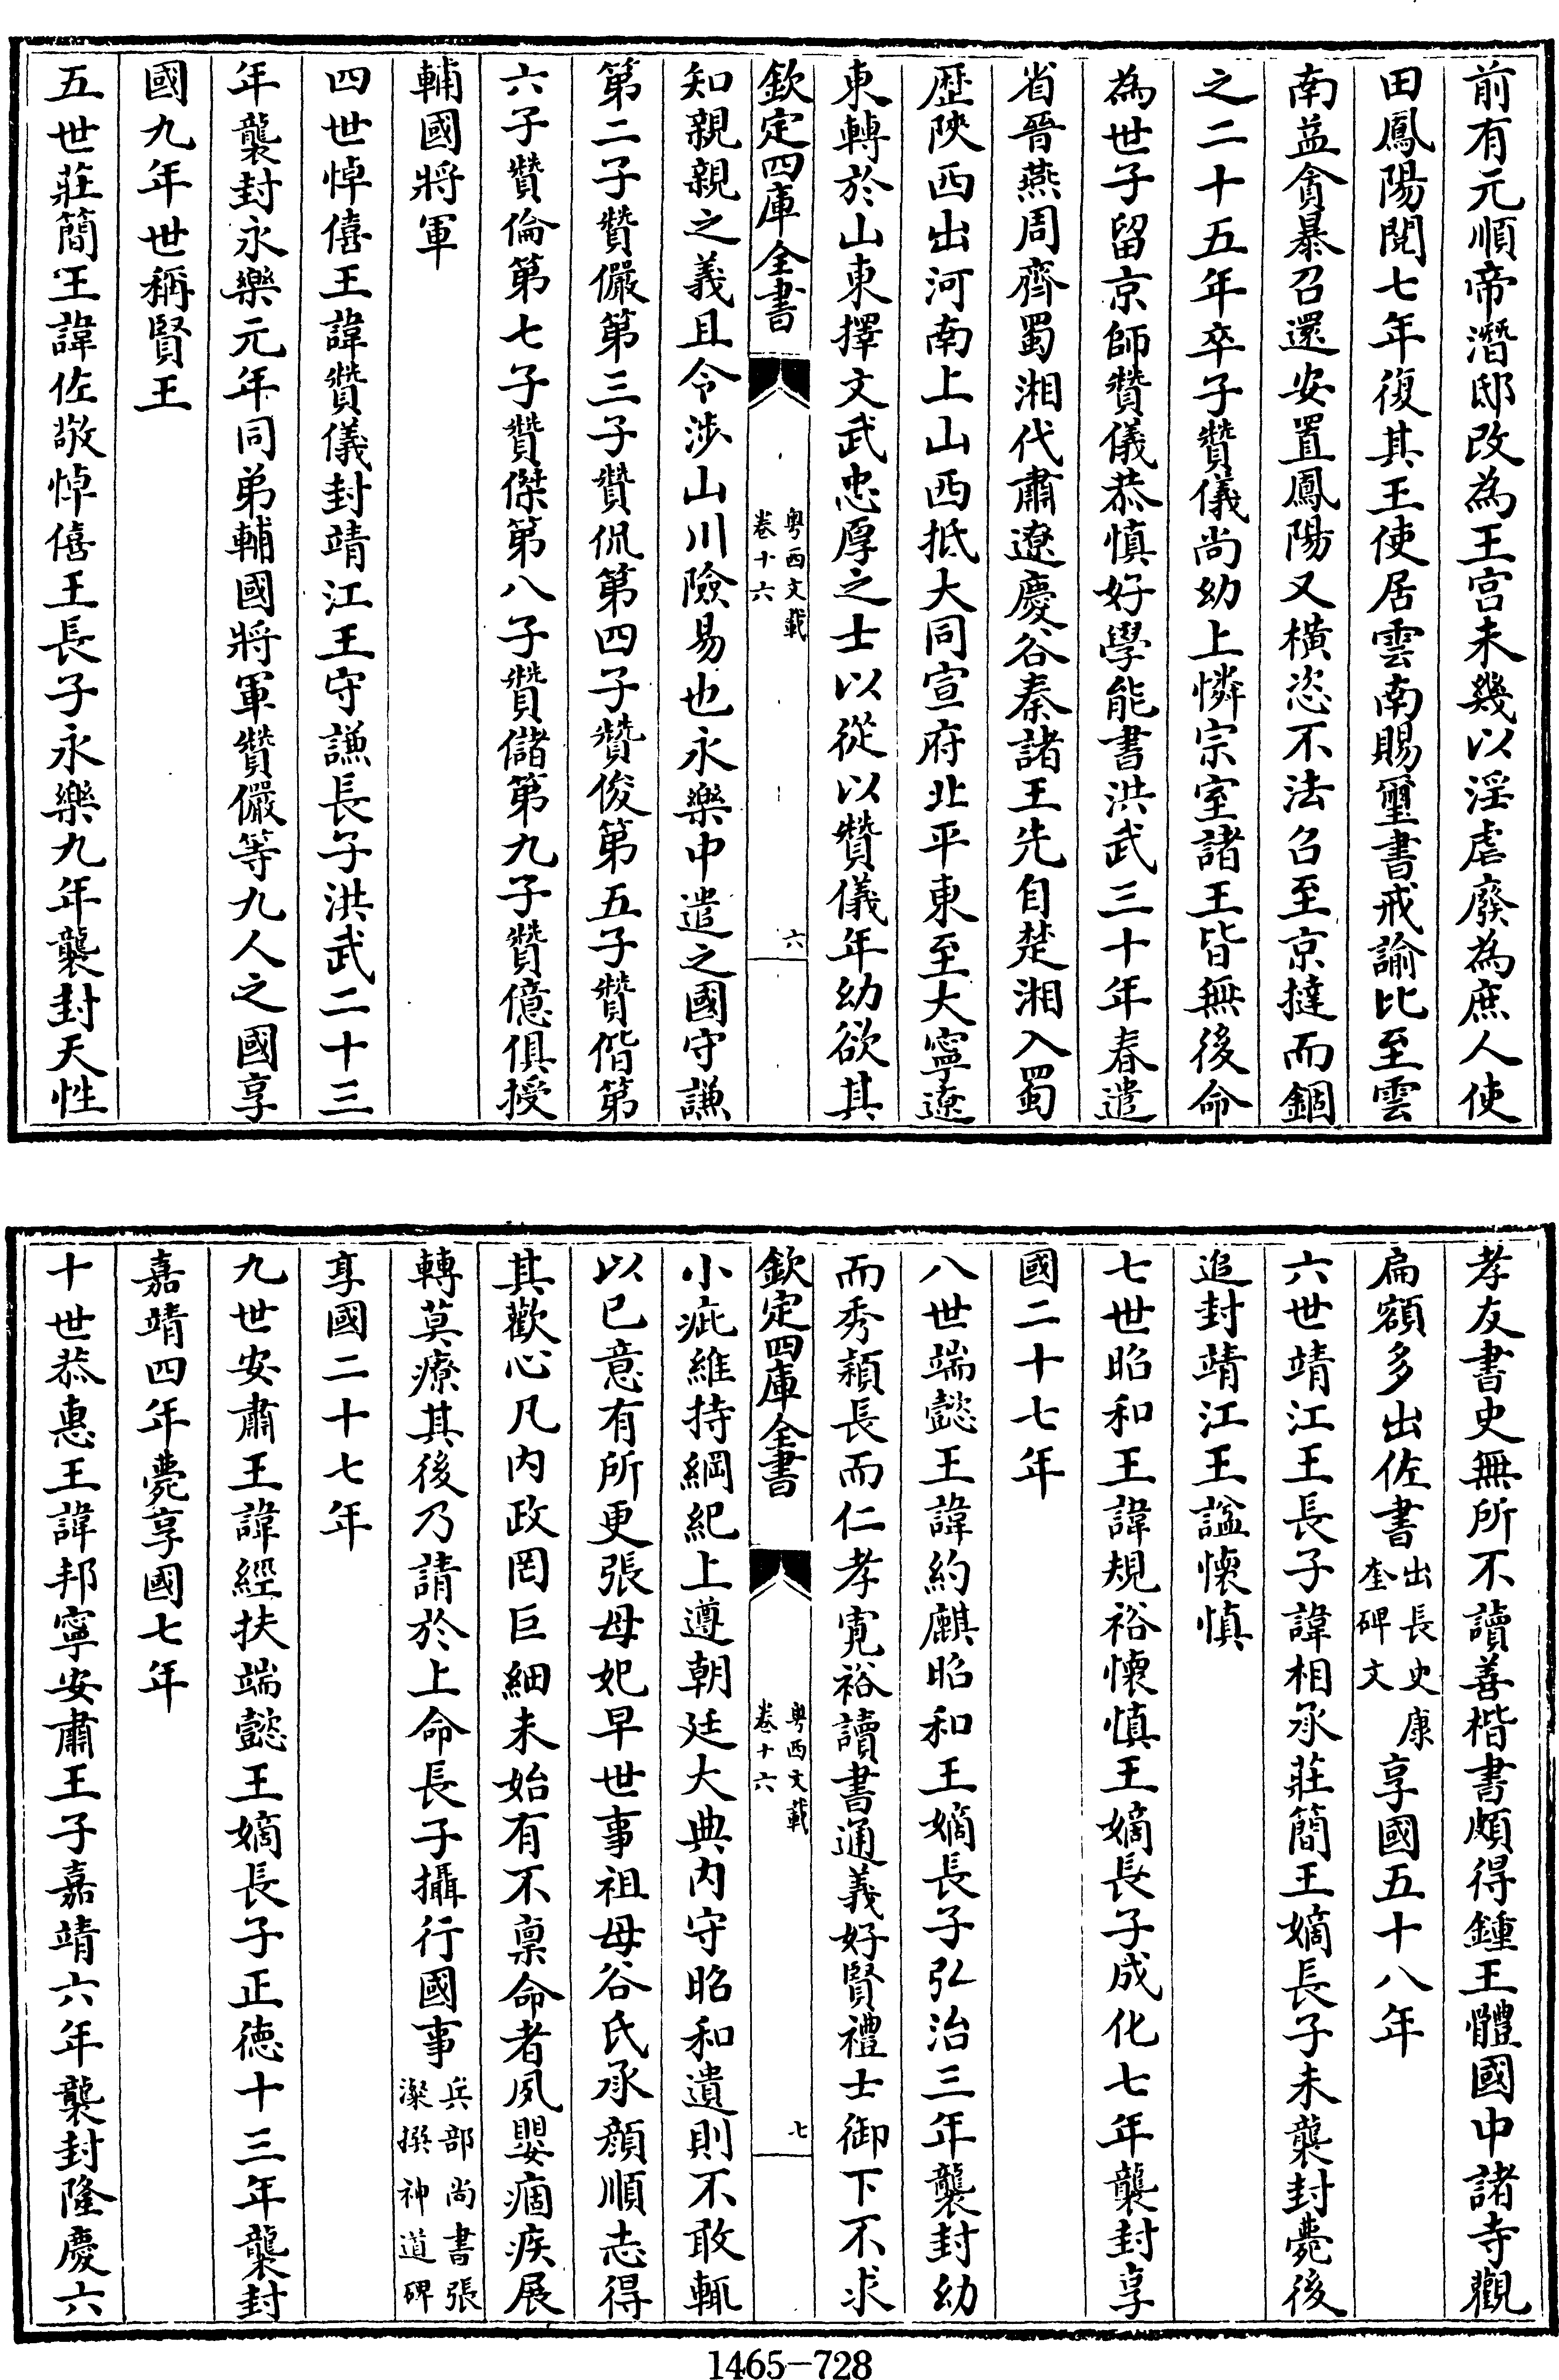 前有元順帝潛邸改為王宫未幾以淫虐廢為庶人使
田鳳陽閱七年復其王使居雲南賜璽書戒諭比至雲
南益貪暴召還安置鳳陽又橫恣不法召至京撻而錮
之二十五年卒子贊儀尚幼上憐宗室諸王皆無後命
為世子留京師贊儀恭慎好學能書洪武三十年春遣
省晉燕周齊蜀湘代肅遼慶谷秦諸王先自楚湘入蜀
歴陜西出河南上山西抵大同宣府北平東至大寧遼
東轉於山東擇文武忠厚之士以從以贊儀年幼欲其
欽定四庫全書
粤西文載
卷十六
六
知親親之義且令渉山川險易也永樂中遣之國守謙
第二子贊儼第三子贊侃第四子贊俊第五子贊偕第
六子贊倫第七子贊傑第八子贊儲第九子贊億俱授
輔國將軍
四世悼僖王諱贊儀封靖江王守謙長子洪武二十三
年襲封永樂元年同弟輔國將軍贊儼等九人之國享
國九年世稱賢王
五世莊簡王諱佐敬悼僖王長子永樂九年襲封天性
孝友書史無所不讀善楷書頗得鍾王體國中諸寺觀
扁額多出佐書出長史康奎碑文享國五十八年
六世靖江王王長子諱相承莊簡王嫡長子未襲封薨後
追封靖江王諡懷慎
七世昭和王諱規裕懷慎王嫡長子成化七年襲封享
國二十七年
八世端懿王諱約麒昭和王嫡長子弘治三年襲封幼
而秀穎長而仁孝寛裕讀書通義好賢禮士御下不求
欽定四庫全書
粤西文載
卷十六
七
小疵維持綱紀上遵朝廷大典内守昭和遺則不敢輒
以已意有所更張母妃早世事祖母谷氏承顔順志得
其歡心凡内政罔巨細未始有不禀命者夙嬰痼疾展
轉莫療其後乃請於上命長子攝行國事兵部尚書張澯撰神道碑
享國二十七年
九世安肅王諱經扶端懿王嫡長子正徳十三年襲封
嘉靖四年薨享國七年
十世恭惠王諱邦寧安肅王子嘉靖六年襲封隆慶六
1465-728